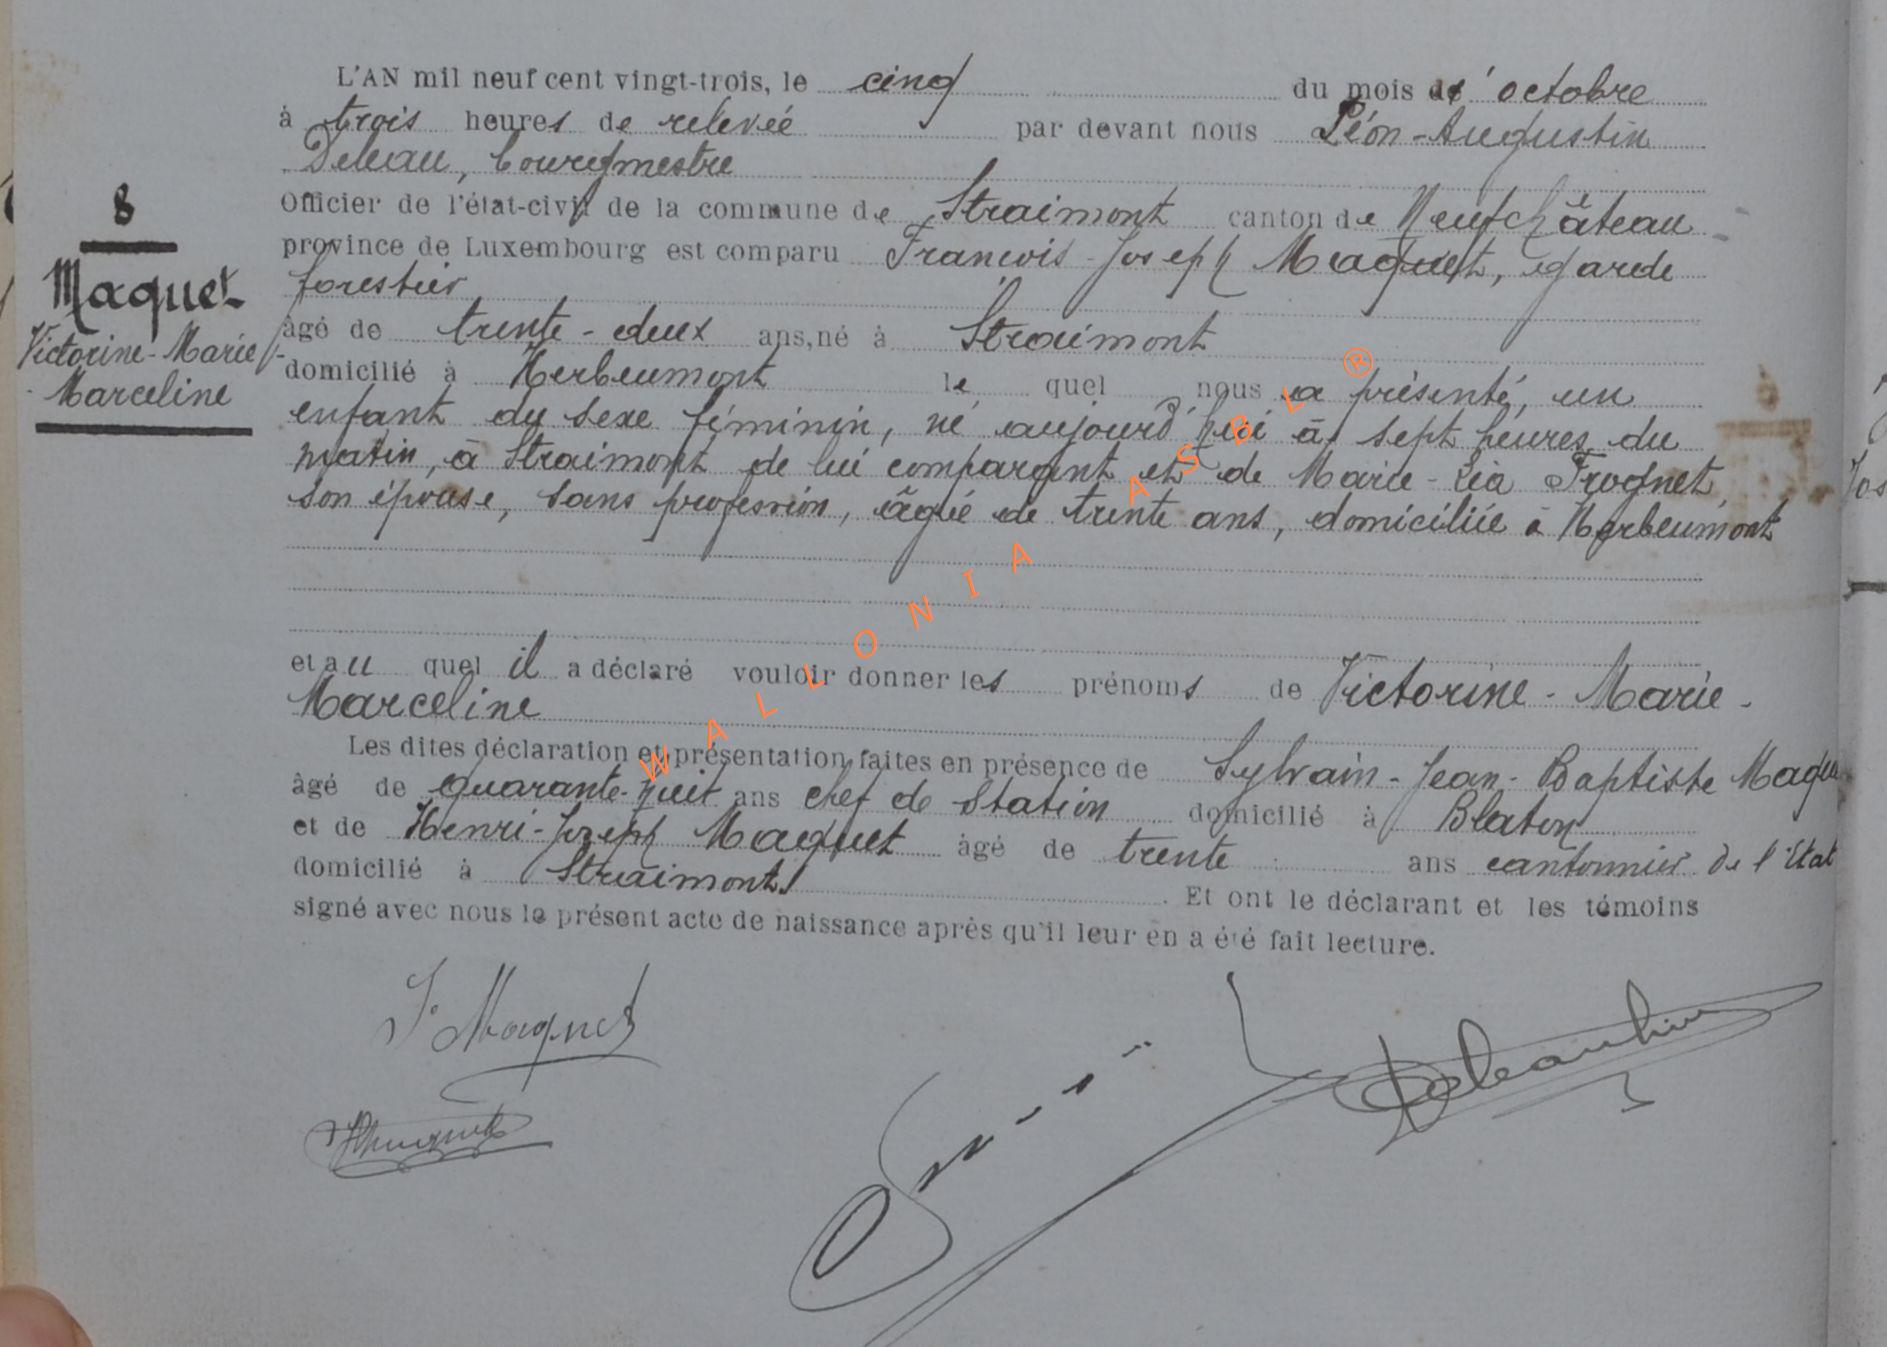 L'AN mil neuf cent vingt-trois, le cinq du mois d'octobre
à trois heures de relevée par devant nous Léon-Augustin
Deleau, bourgmestre
Officier de l'état-civil de la commune de Straimont canton de Neufchâteau
province de Luxembourg est comparu François-Joseph Maquet, garde
forestier
âgé de trente-deux ans, né à Straimont
domicilié à Herbeumont le quel nous a présenté, un
enfant du sexe féminin, né aujourd'hui à sept heures du
matin, à Straimont de lui comparant et de Marie-Léa Frognet
son épouse, sans profession, âgée de trente ans, domiciliée à Herbeumont
et au quel il a déclaré vouloir donner les prénoms de Victorine-Marie-
Marceline
Les dites déclaration et présentation faites en présence de Sylvain-Jean-Baptiste Maqu
âgé de quarante-huit ans chef de Station domicilié à Blaton
et de Henri-Joseph Maquet âgé de trente ans cantonnier de l'Etat
domicilié à Straimont. Et ont le déclarant et les témoins
signé avec nous le présent acte de naissance après qu'il leur en a été fait lecture.
8
Maquet
Victorine-Marie-
Marceline
Maquet
WALLONIA ASBL ®